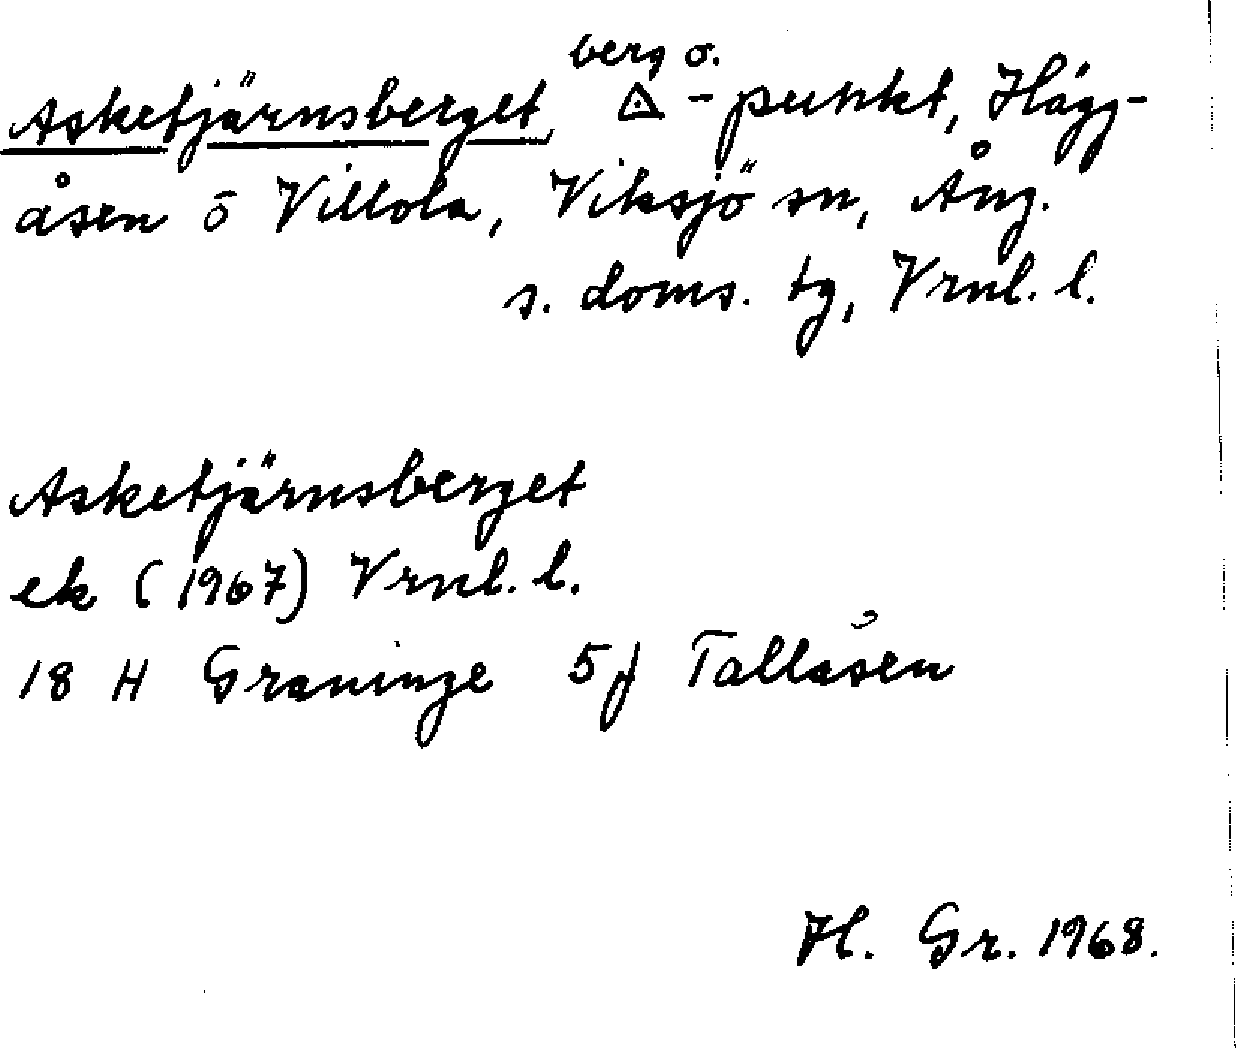 Asketjärnsberget, berg o. △-punkt, Hägg-
åsen ö Villola, Viksjö sn, Ång.
s. doms. tg, Vrnl. l.
Asketjärnsberget
ek (1967) Vrnl. l.
18 H Graninge 5j Tallåsen
H. Gr. 1968.